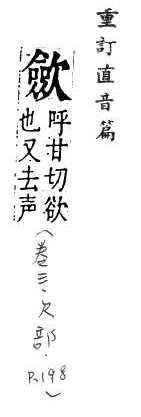 重訂直音篇
歛
呼甘切欲
也又去声
(卷三·欠部·P.198)